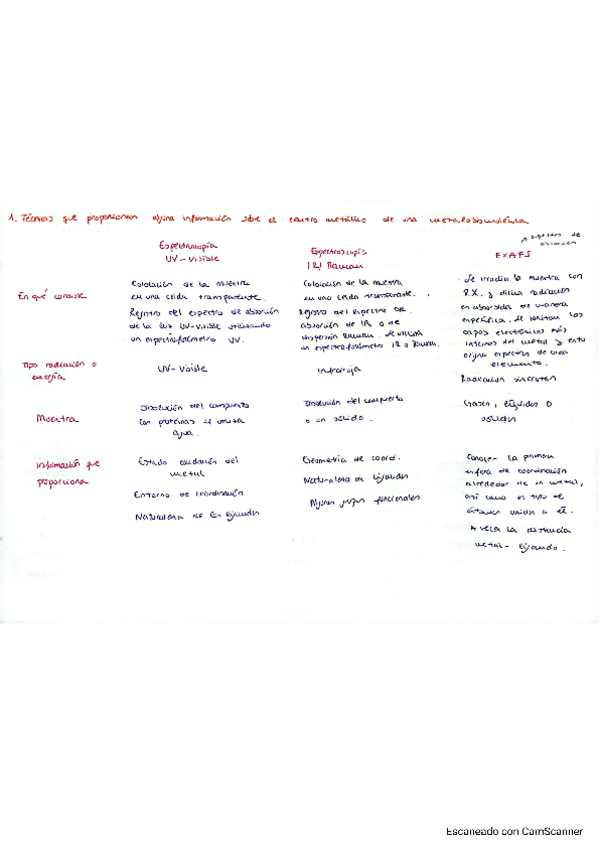 1. Técnicas que proporcionan alguna información sobre el centro metálico de una metalobiomolécula
Espectroscopía
UV-Visible
Espectroscopía
IR/Raman
espectros de
absorción
EXAFS
En qué consiste
Colocación de la muestra
en una celda transparente.
Registro del espectro de absorción
de la luz UV-visible utilizando
un espectrofotómetro UV.
Colocación de la muestra
en una celda transparente.
Registro del espectro de
absorción de IR o de
dispersión Raman. Se utiliza
un espectrofotómetro IR o Raman.
Se irradia la muestra con
R.X. y dicha radiación
es absorbida de manera
específica. Se ionizan las
capas electrónicas más
internas del metal y esto
origina espectros de cada
elemento.
Tipo radiación o
energía
UV-Visible
Infrarroja
Radiación sincrotrón
Muestra
Disolución del compuesto
con proteínas se
agua.
Disolución del compuesto
o un sólido.
Gases, líquidos o
sólidos
Información que
proporciona
Estado oxidación del
metal
Entorno de coordinación
Naturaleza de los ligandos
Geometría de coord.
Naturaleza de ligandos
Algunos grupos funcionales
Conocer la primera
esfera de coordinación
alrededor de un metal,
así como el tipo de
átomos unidos a él.
A veces la distancia
metal-ligando.
Escaneado con CamScanner